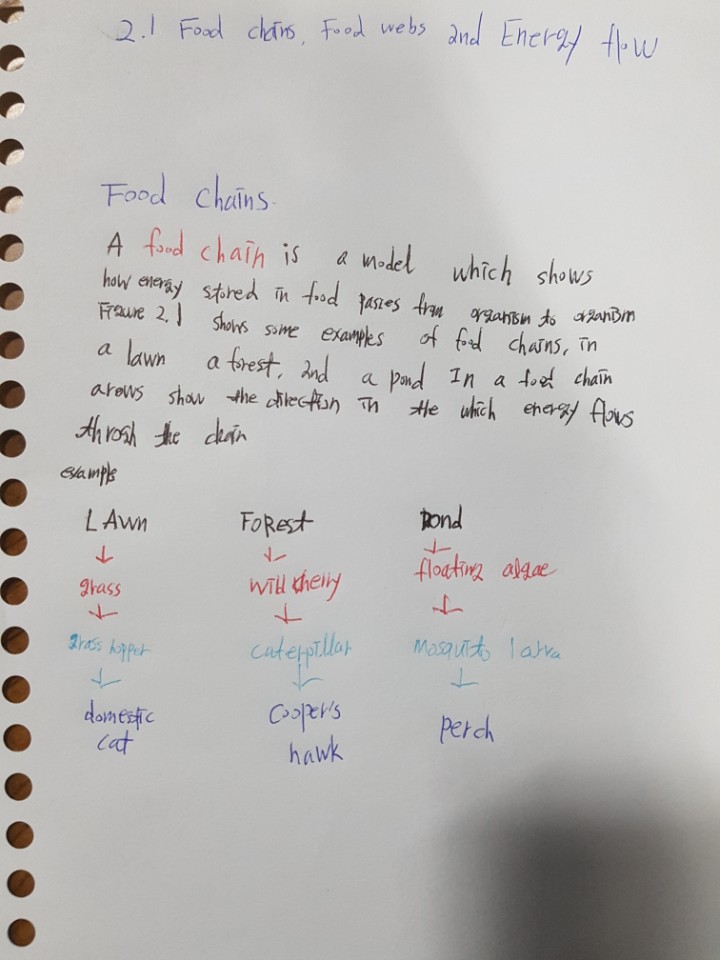 2.1 Food chains, Food webs and Energy flow
Food chains.
A food chain is a model which shows
how energy stored in food passes from organism to organism
Figure 2.1 shows some examples of food chains, in
a lawn a forest, and a pond In a food chain
arows show the direction in the which energy flows
throgh the chain
example
LAwn FoRest Pond
↓ ↓ ↓
grass will cherry floating algae
↓ ↓ ↓
grass hopper caterpillar mosquito larva
↓ ↓ ↓
domestic Cooper's perch
cat hawk